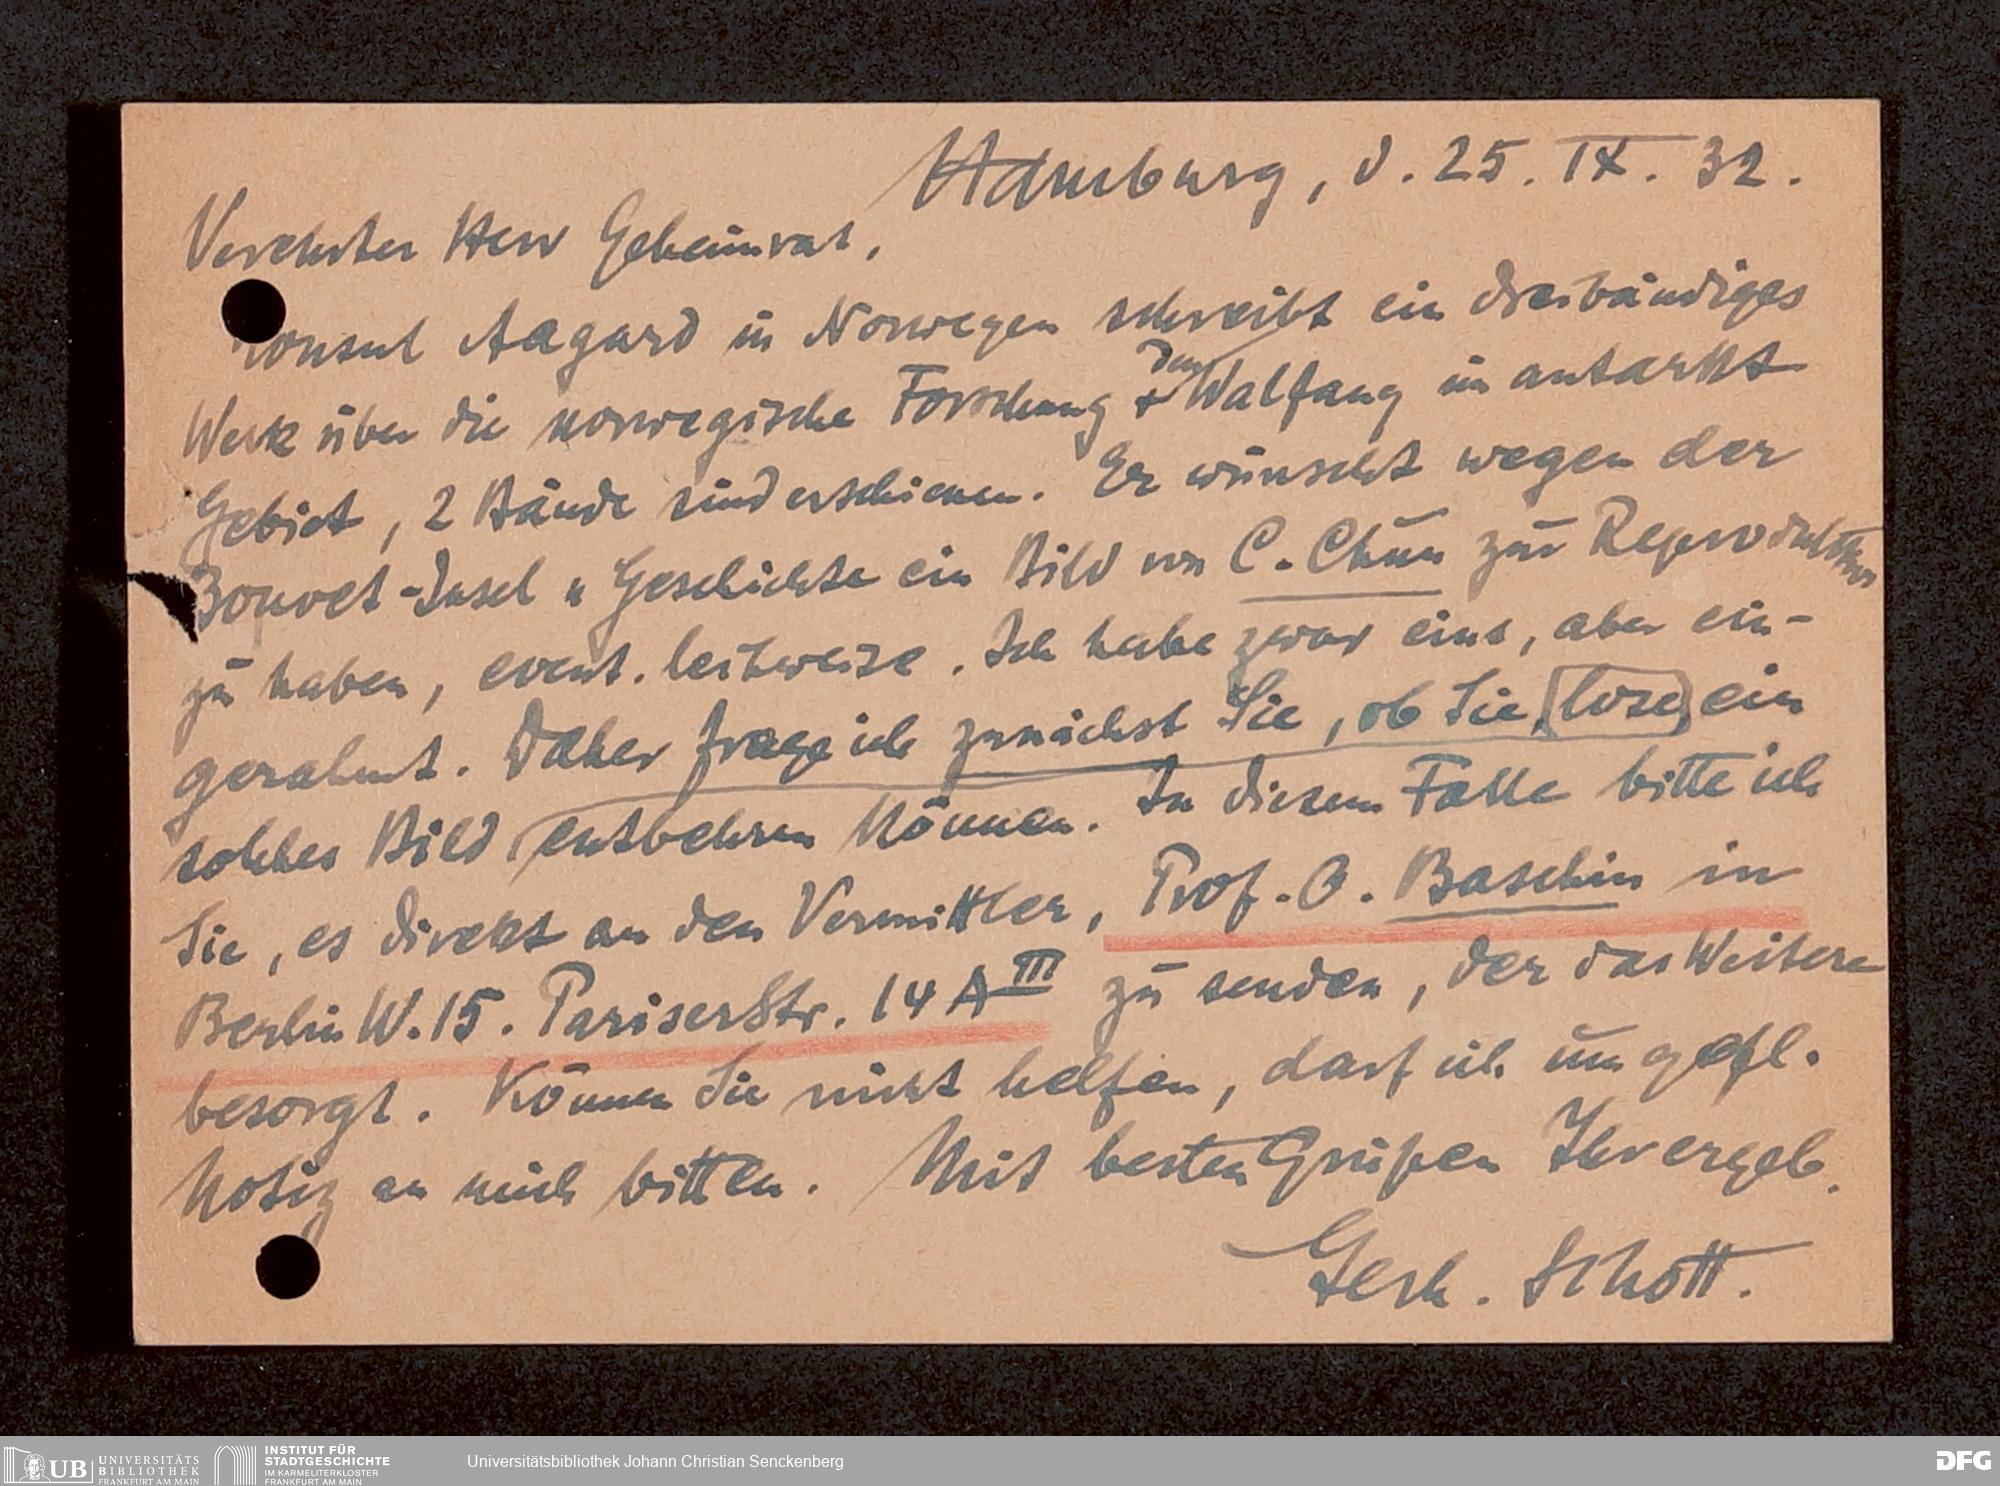 Hamburg, d. 25. IX. 32.
Verehrter Herr Geheimrat,
Konsul Aagard in Norwegen schreibt ein dreibändiges
Werk über die norwegische Forschung + den Walfang im antarkt
Gebiet, 2 Bände sind erschienen. Er wünscht wegen der
Bouvet-Insel u Geschichte ein Bild von C. Chun zur Reproduktion
zu haben, event. leihweise. Ich habe zwar eins, aber ein-
gerahmt. Daher frage ich zunächst Sie, ob Sie lose ein
solches Bild entbehren können. In diesem Falle bitte ich
Sie, es direkt an den Vermittler, Prof. O. Baschin in
Berlin W. 15. Pariser Str. 14 A III zu senden, der das Weitere
besorgt. Können Sie nicht helfen, darf ich um gefl.
Notiz an mich bitten. Mit besten Grüßen Ihr ergeb.
Gerh. Schott.
UB UNIVERSITÄTS
BIBLIOTHEK
FRANKFURT AM MAIN
INSTITUT FÜR
STADTGESCHICHTE
IM KARMELITERKLOSTER
FRANKFURT AM MAIN
Universitätsbibliothek Johann Christian Senckenberg
DFG